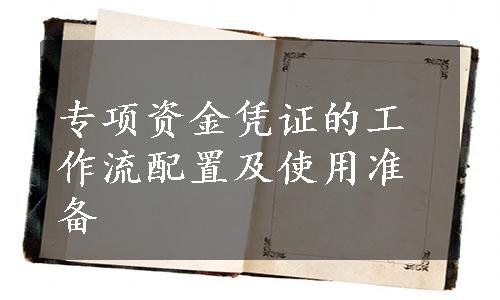 专项资金凭证的工
作流配置及使用准
备